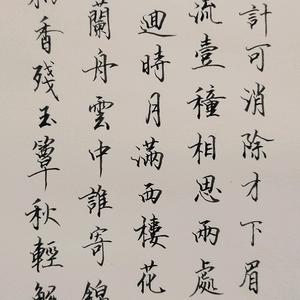 計可消除才下眉
流壹種相思兩處
迴時月滿西樓花
蘭舟雲中誰寄錦
香殘玉簟秋輕解